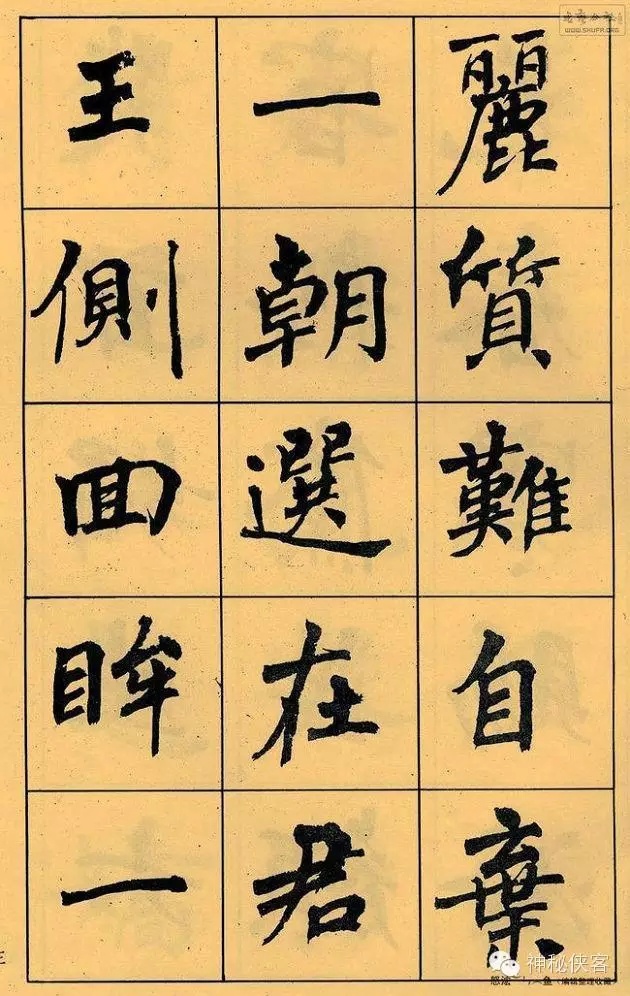 麗質難自棄
一朝選在君
王側回眸一
WWW.SHUFA.ORG
神秘侠客